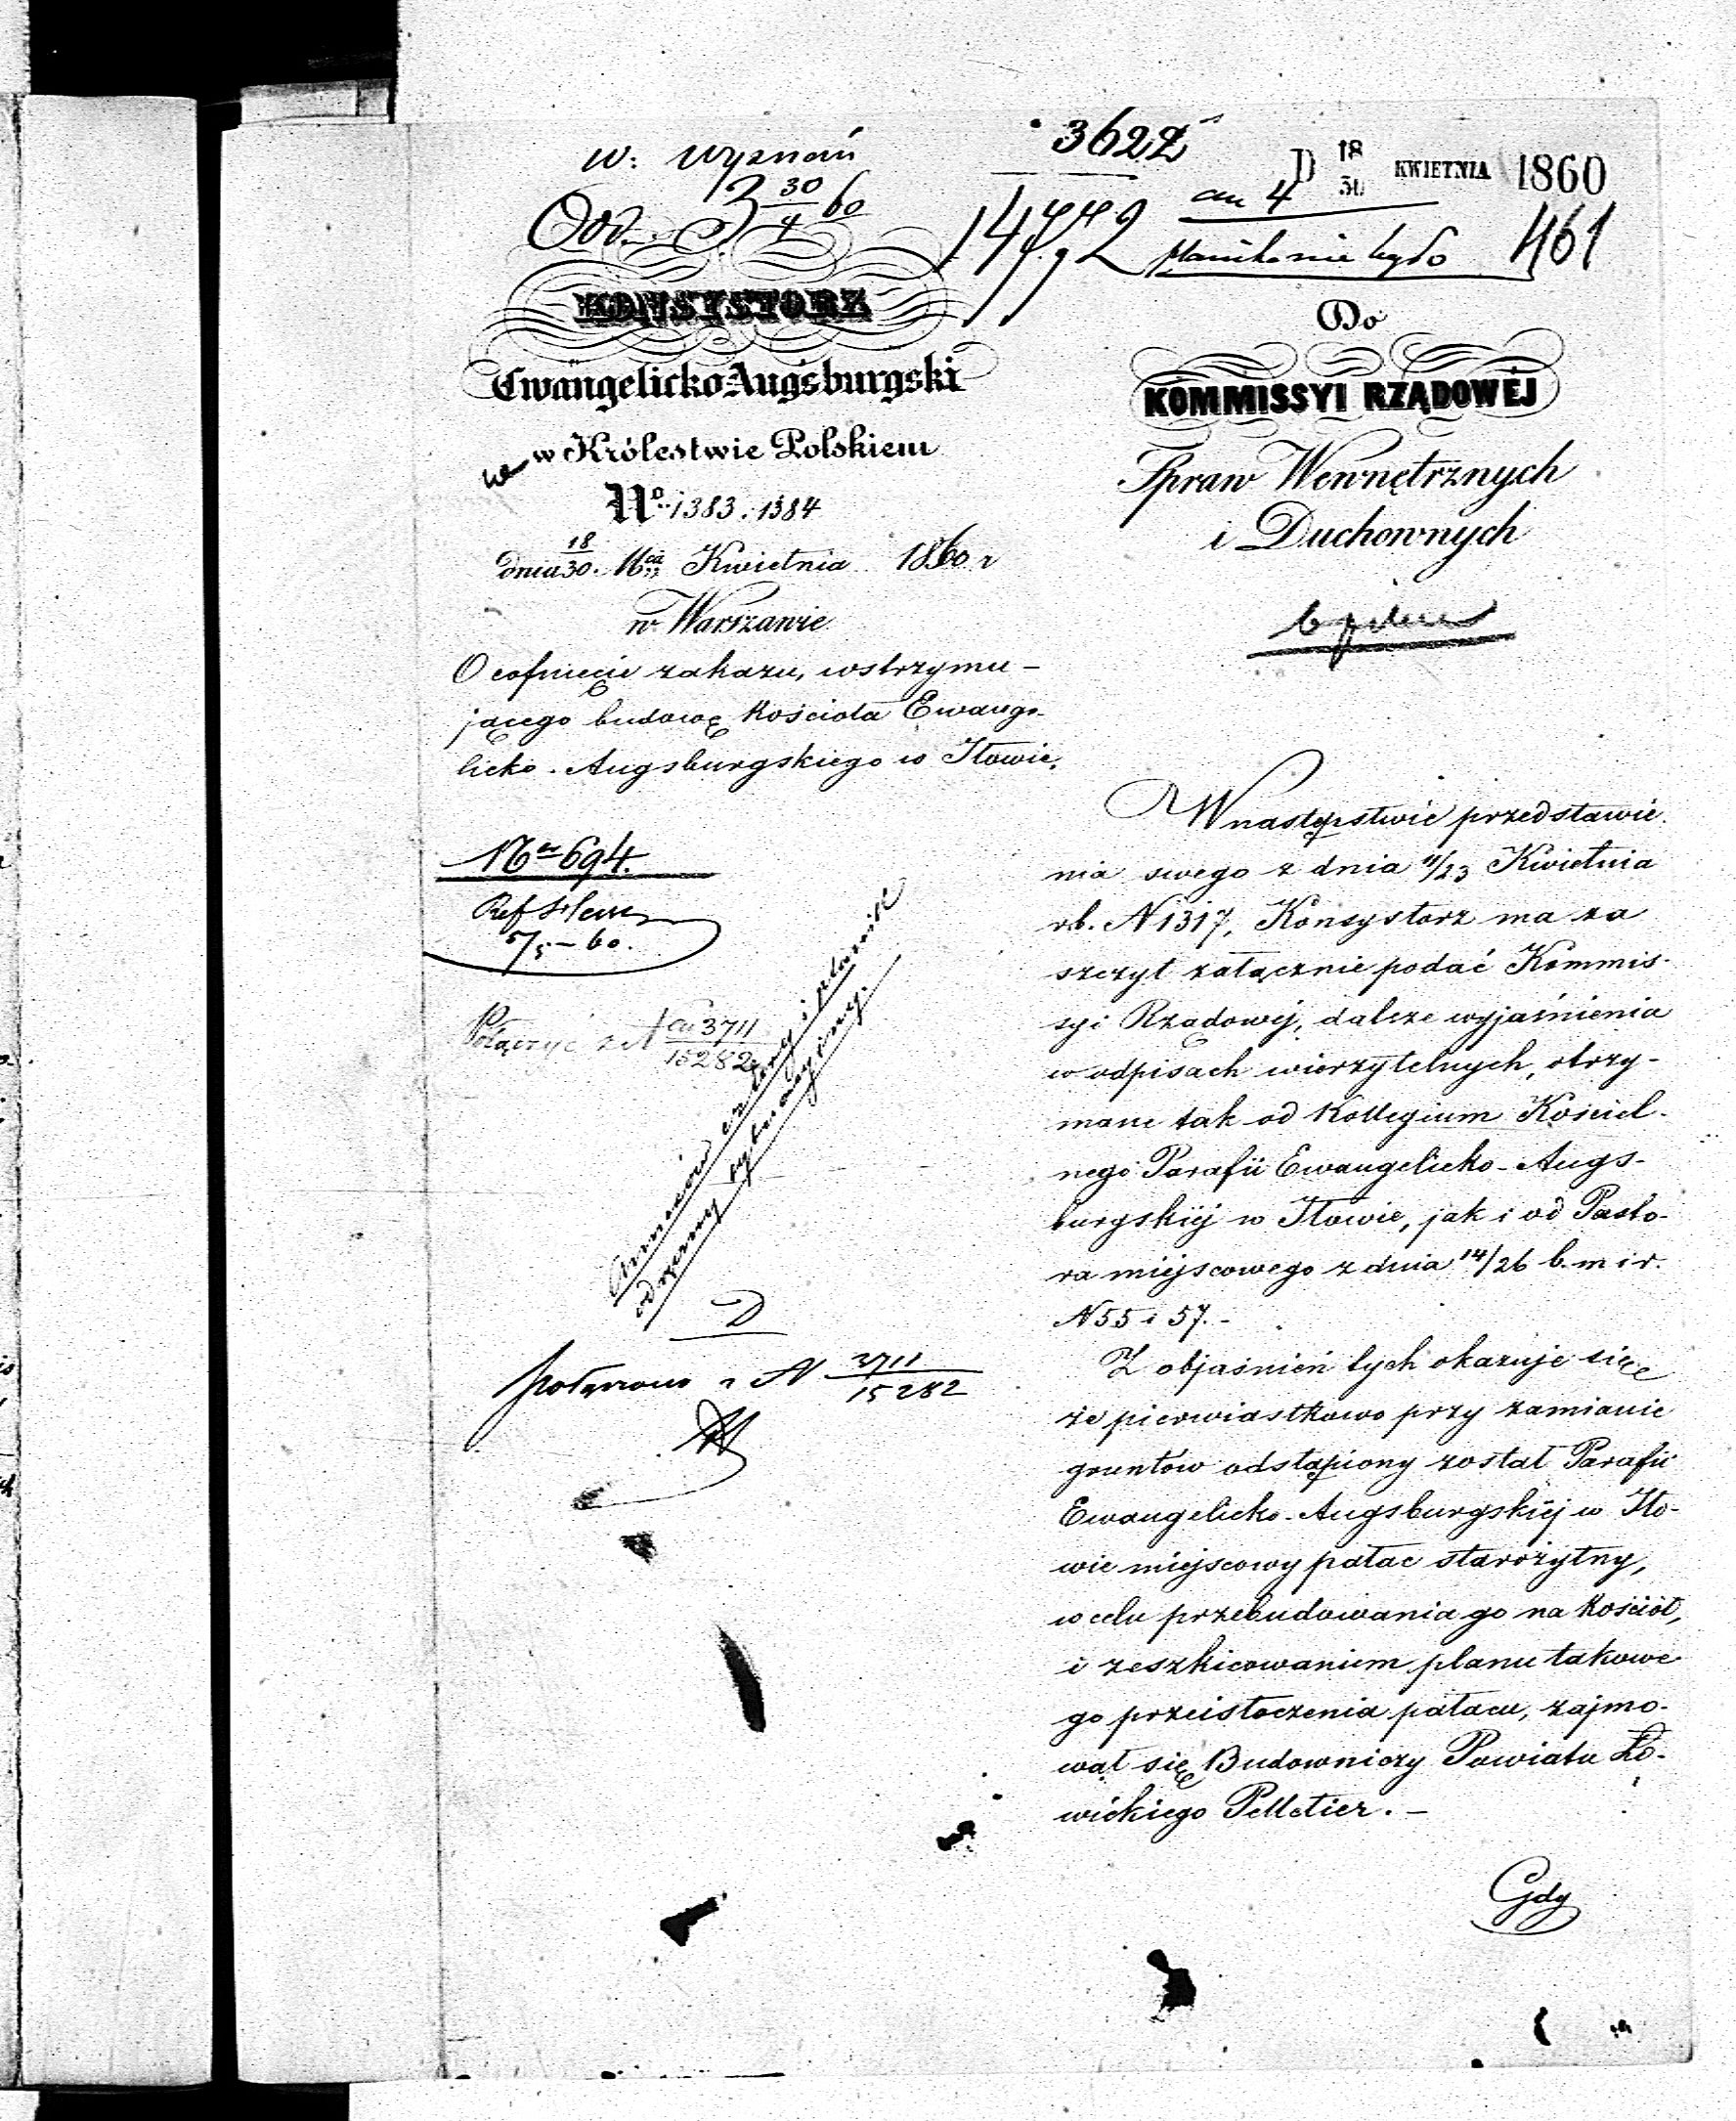 W: Wyznań
Odd. 3 30/4 60
3622
14772
an 4
D 18/30 KWIETNIA 1860
461
KONSYSTORZ
Ewangelicko-Augsburgski
w Królestwie Polskiem
No. 1383. 1384
dnia 18/30. Mca Kwietnia 1860 r
w Warszawie
O cofnięcie zakazu, wstrzymu-
jącego budowę Kościoła Ewange-
licko-Augsburgskiego w Iłowie.
Do
KOMMISSYI RZĄDOWÉJ
Spraw Wewnętrznych
i Duchownych
No 694.
Ref
5/5 – 60.
Połączyć z N 3711/15282
D
połączono z N 3711/15282
W następstwie przedstawie-
nia swego z dnia 11/23 Kwietnia
r.b. N 1317, Konsystorz ma za
szczyt załącznie podać Kommis-
syi Rządowéj, dalsze wyjaśnienia
w odpisach wierzytelnych, otrzy-
mane tak od Kollegium Kościel-
nego Parafii Ewangelicko-Augs-
burgskiéj w Iłowie, jak i od Pasto-
ra miejscowego z dnia 14/26 b. m i r.
N 55 i 57. -
Z objaśnień tych okazuje się
że pierwiastkowo przy zamianie
gruntów odstąpiony został Parafii
Ewangelicko-Augsburgskiéj w Iło-
wie miejscowy pałac starożytny,
w celu przebudowania go na Kościół,
i zeszkicowaniem planu takowe
go przeistoczenia pałacu, zajmo-
wał się Budowniczy Powiatu Ło-
wickiego Pelletier. –
Gdy